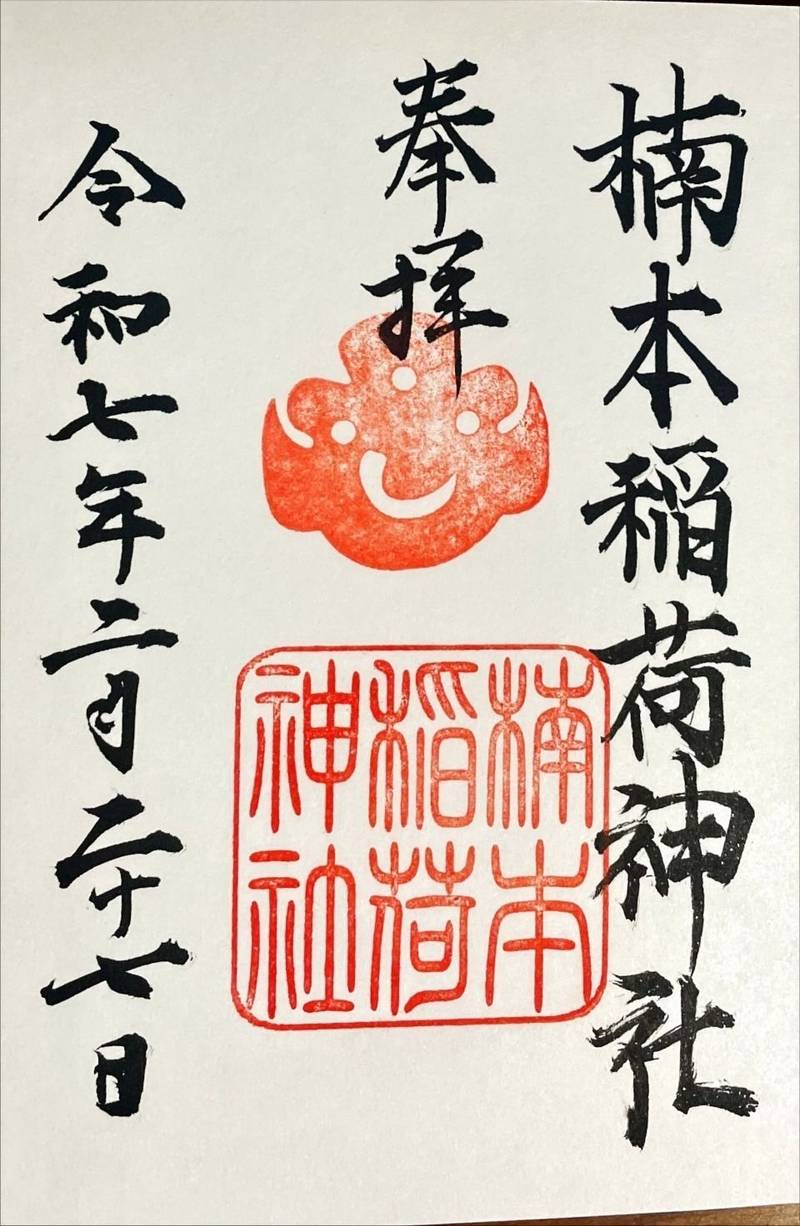 楠本稲荷神社
奉拝
楠本
稲荷
神社
令和七年二月二十七日